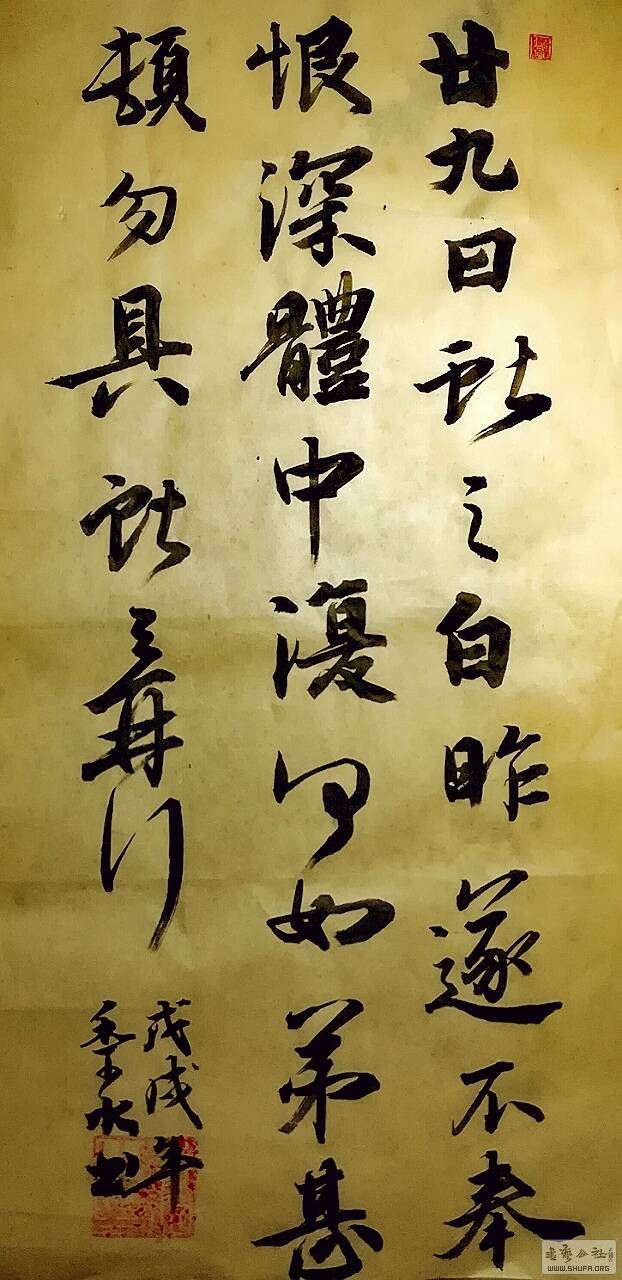 廿九日獻之白昨遂不奉
恨深體中復何如弟甚
頓勿具獻之再行
戊戌年
書
書藝公社
WWW.SHUFA.ORG